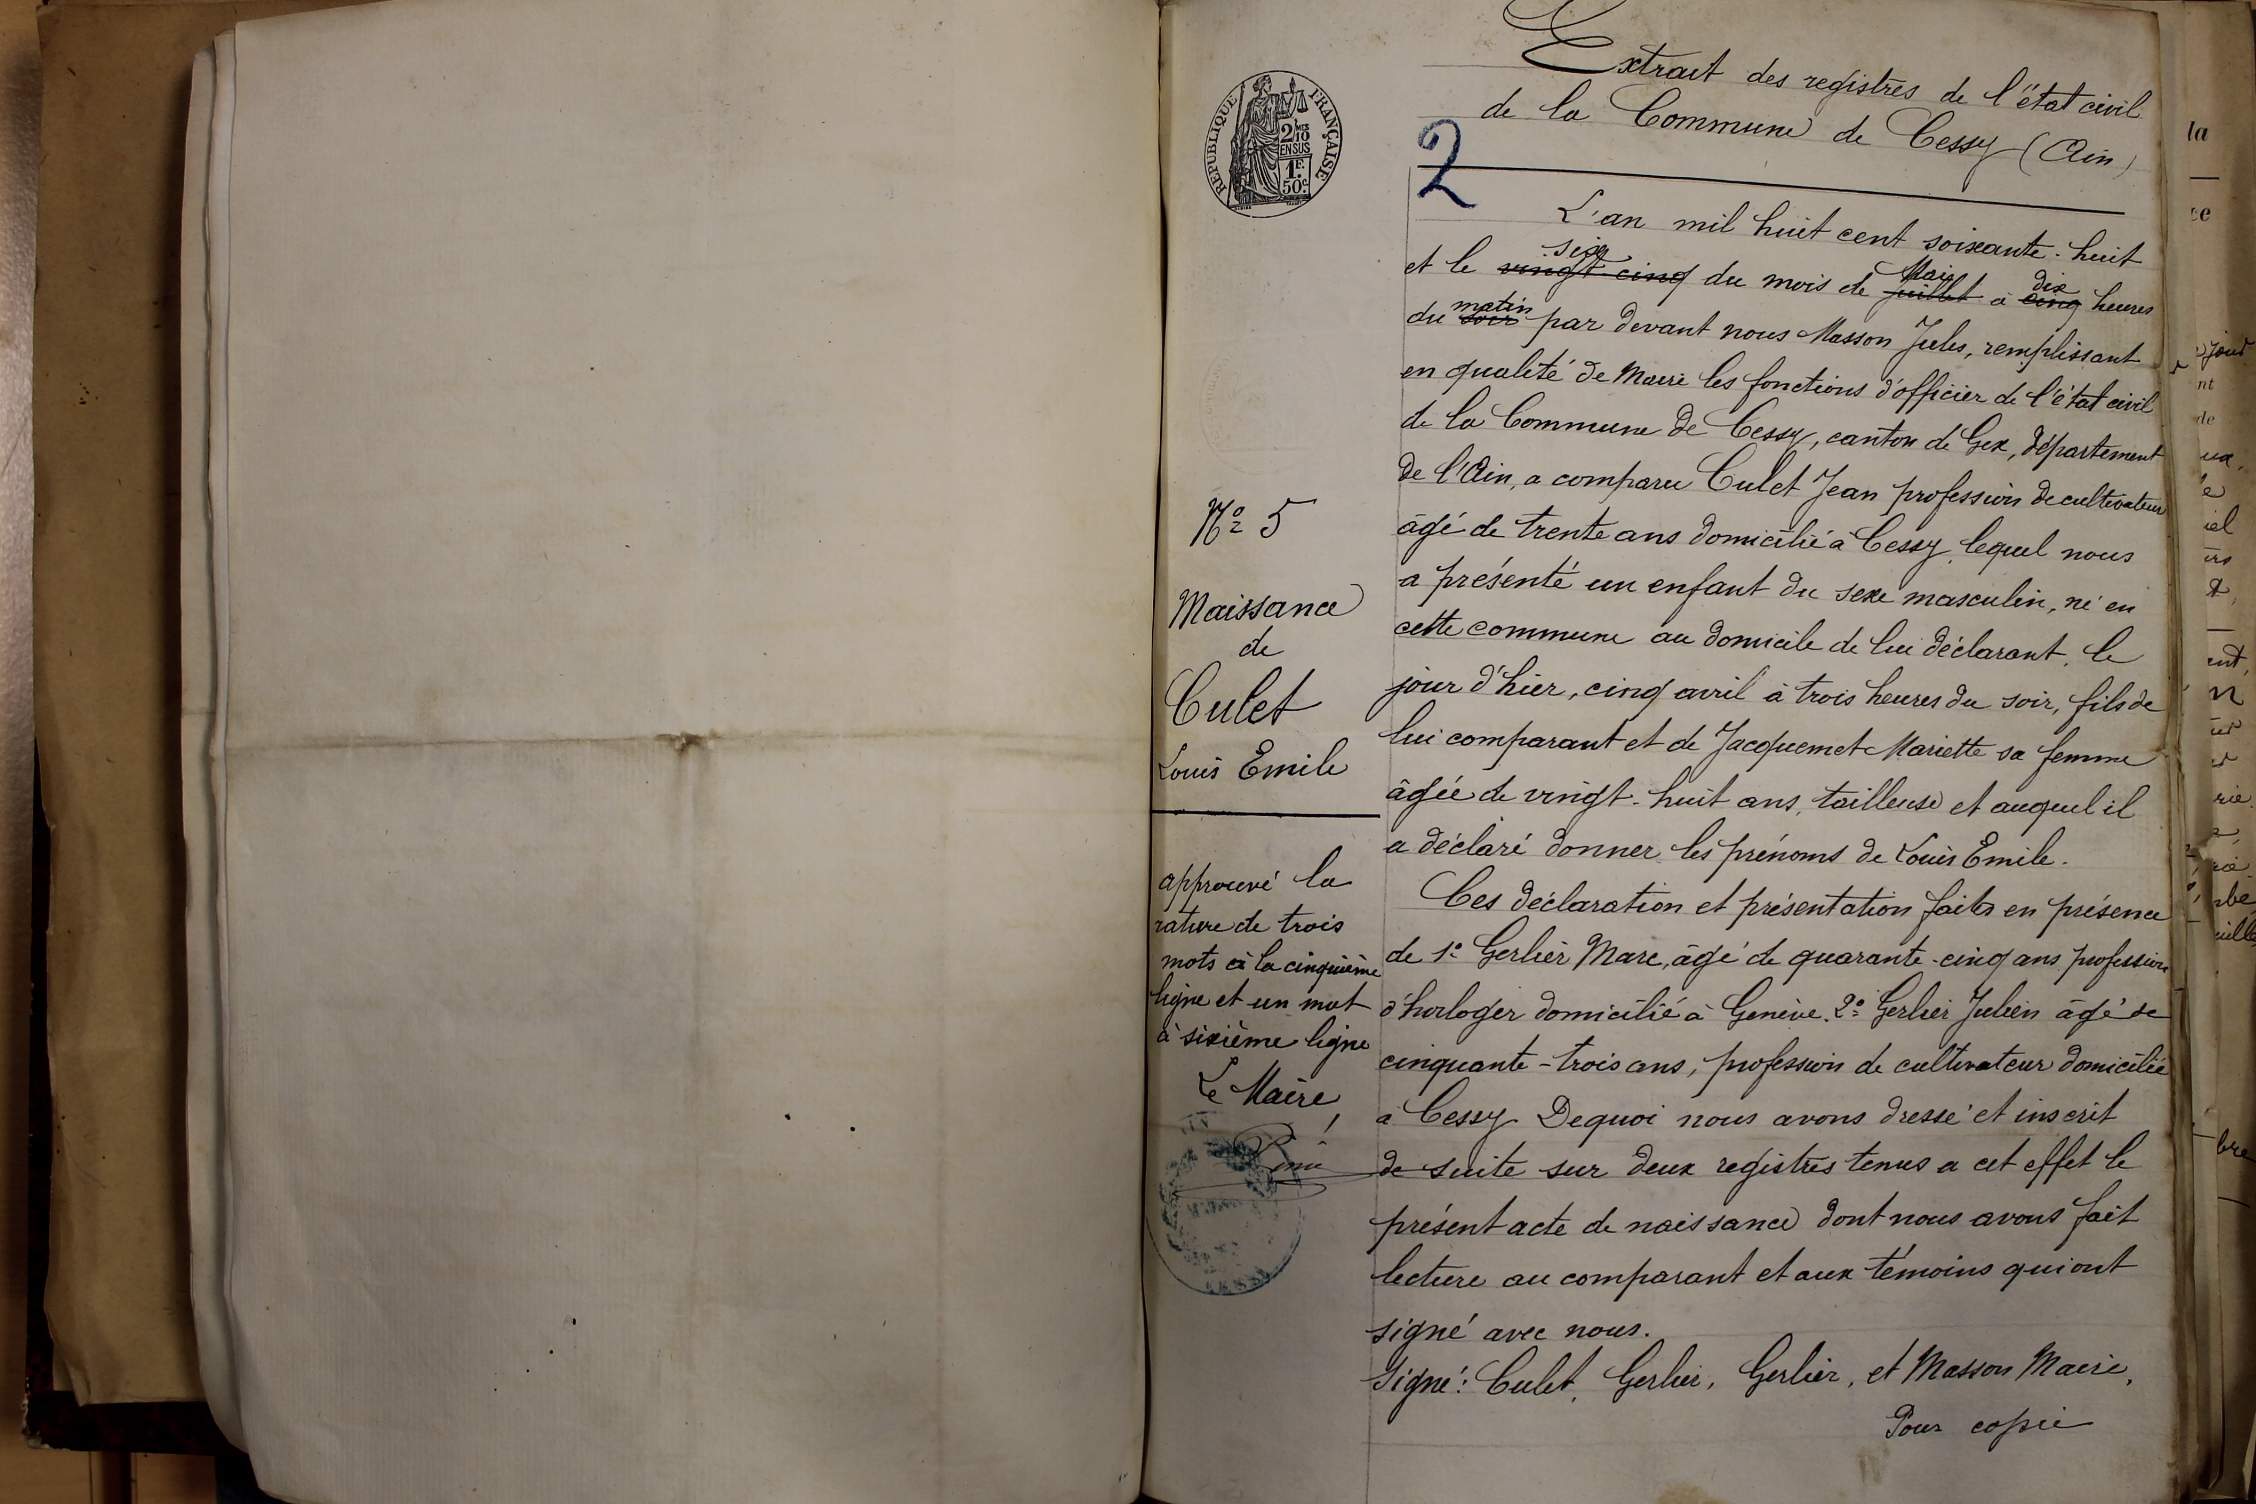 Extrait des registres de l'état civil
de la Commune de Cessy (Ain)
RÉPUBLIQUE FRANÇAISE
2/10
EN SUS
1F.
50c.
2
L'an mil huit cent soixante-huit
et le vingt cinq six du mois de juillet Mai à cinq dix heures
du soir matin par devant nous Masson Jules, remplissant
en qualité de Maire les fonctions d'officier de l'état civil
de la Commune de Cessy, canton de Gex, département
de l'Ain, a comparu Culet Jean profession de cultivateur
âgé de trente ans domicilié à Cessy, lequel nous
a présenté un enfant du sexe masculin, né en
cette commune au domicile de lui déclarant, le
jour d'hier, cinq avril à trois heures du soir, fils de
lui comparant et de Jacquemet Mariette sa femme
âgée de vingt-huit ans, tailleuse et auquel il
a déclaré donner les prénoms de Louis Emile.
Ces déclaration et présentation faites en présence
de 1º Gerlier Marc, âgé de quarante-cinq ans profession
d'horloger domicilié à Genève. 2º Gerlier Julien âgé de
cinquante-trois ans, profession de cultivateur domicilié
à Cessy Dequoi nous avons dressé et inscrit
de suite sur deux registres tenus a cet effet le
présent acte de naissance dont nous avons fait
lecture au comparant et aux témoins qui ont
signé avec nous.
Signé: Culet, Gerlier, Gerlier, et Masson Maire,
Pour copie
Nº 5
Naissance
de
Culet
Louis Emile
approuvé la
rature de trois
mots à la cinquième
ligne et un mot
à sixième ligne
Le Maire